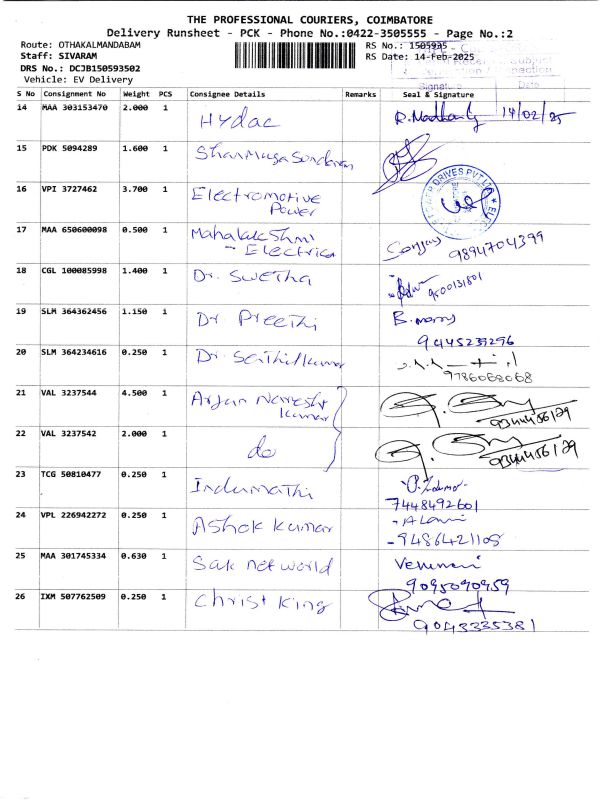 THE PROFESSIONAL COURIERS, COIMBATORE
Delivery Runsheet - PCK - Phone No.:0422-3505555 - Page No.:2
Route: OTHAKALMANDABAM
RS No.: 1505935
Staff: SIVARAM
RS Date: 14-Feb-2025
DRS No.: DCJB150593502
Vehicle: EV Delivery
Signature Date
S No Consignment No Weight PCS Consignee Details Remarks Seal & Signature
14 MAA 303153470 2.000 1 Hydac 14/02/25
15 PDK 5094289 1.600 1 Shanmuga Sundaram
16 VPI 3727462 3.700 1 Electromotive
Power
17 MAA 650600098 0.500 1 Mahalakshmi
- Electrica Sanjay 9894704399
18 CGL 100085998 1.400 1 Dr. Swetha 9500131801
19 SLM 364362456 1.150 1 Dr Preethi B. 
9445239296
20 SLM 364234616 0.250 1 Dr Senthilkumar
9786068068
21 VAL 3237544 4.500 1 Arjun Naresh
kumar
22 VAL 3237542 2.000 1 do
23 TCG 50810477 0.250 1 Indumathi
7448492601
24 VPL 226942272 0.250 1 Ashok kumar
-9486421105
25 MAA 301745334 0.630 1 Sak net world
9095090959
26 IXM 507762509 0.250 1 Christ King
9043335381